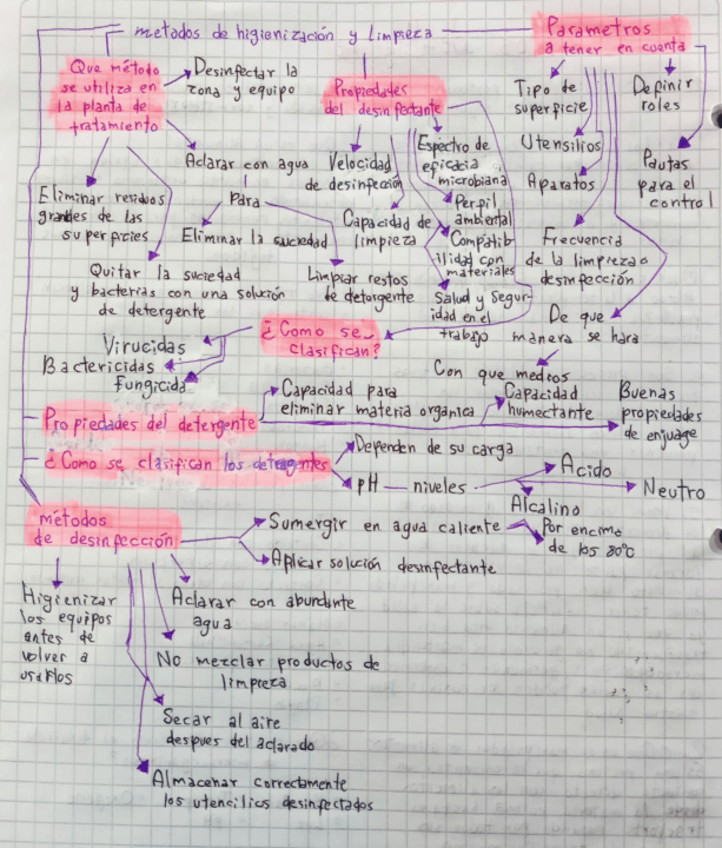 metodos de higienización y limpieza
Parametros
a tener en cuenta
Que método
se utiliza en
la planta de
tratamiento
Desinfectar la
zona y equipo
Propiedades
del desinfectante
Tipo de
superficie
Definir
roles
Aclarar con agua
Velocidad
de desinfección
Espectro de
eficacia
microbiana
Utensilios
Aparatos
Pautas
para el
control
Eliminar residuos
grandes de las
superficies
Para
Eliminar la suciedad
Capacidad de
limpieza
Perfil
ambiental
Compatib
ilidad con
materiales
Frecuencia
de la limpieza o
desinfección
Quitar la suciedad
y bacterias con una solución
de detergente
Limpiar restos
de detergente
Salud y Segur-
idad en el
trabajo
De que
manera se hara
¿Como se
clasifican?
Virucidas
Bactericidas
fungicida
Con que medios
Propiedades del detergente
Capacidad para
eliminar materia orgánica
Capacidad
humectante
Buenas
propiedades
de enjuage
¿Como se clasifican los detergentes
Dependen de su carga
pH
niveles
Acido
Neutro
Alcalino
métodos
de desinfección
Sumergir en agua caliente
Por encima
de los 80°C
Aplicar solución desinfectante
Higienizar
los equipos
antes de
volver a
usarlos
Aclarar con abundante
agua
No mezclar productos de
limpieza
Secar al aire
despues del aclarado
Almacenar correctamente
los utencilios desinfectados